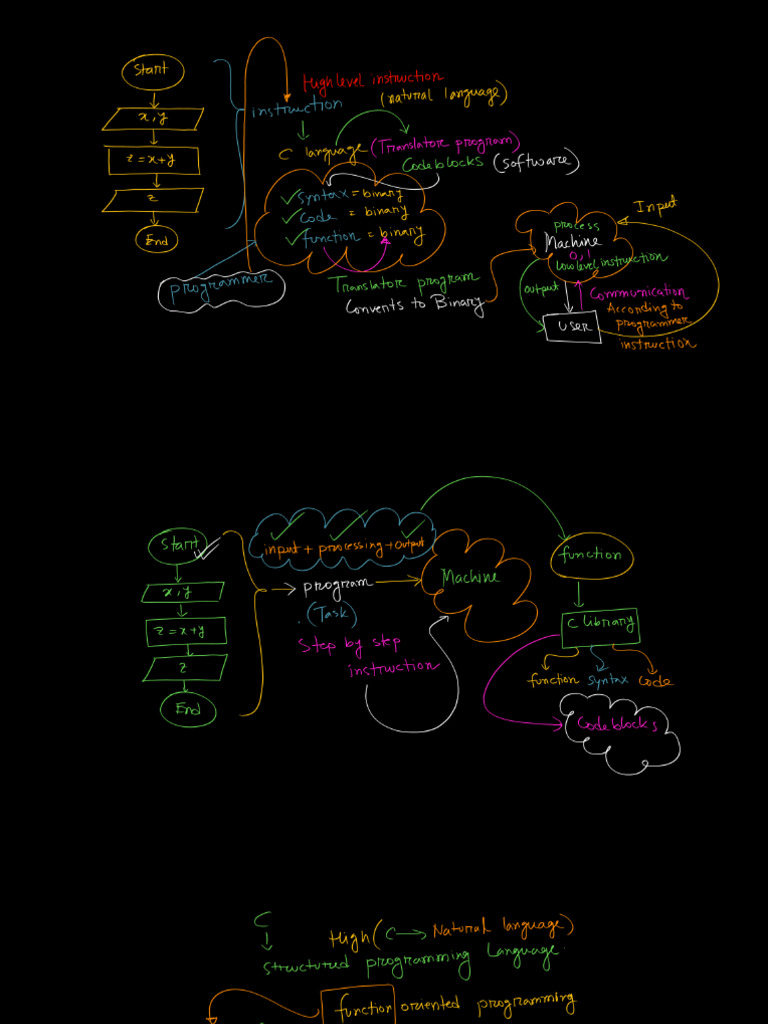 Start
x, y
z = x+y
z
End
High level instruction
(natural language)
instruction
C language (Translatore program)
Codeblocks (software)
Syntax = binary
Code = binary
function = binary
programmer
Translatore program
Converts to Binary
Input
process
Machine
0, 1
low level instruction
output
Communication
According to
programmer
instruction
user
Start
x, y
z = x+y
z
End
input + processing + output
program
(Task)
Step by step
instruction
Machine
function
C library
function Syntax Code
Codeblocks
C
High (C → Natural language)
Structured programming Language.
function oriented programming